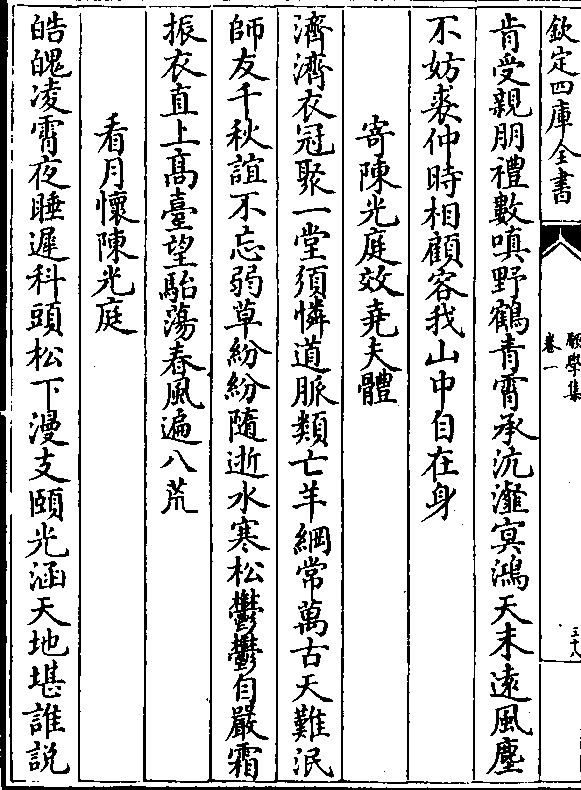 欽定四庫全書
願學集
卷一
三十八
肯受親朋禮數嗔野鶴青霄承沆瀣冥鴻天末遠風塵
不妨裘仲時相顧容我山中自在身
寄陳光庭效堯夫體
濟濟衣冠聚一堂須憐道脈類亡羊綱常萬古天難泯
師友千秋誼不忘弱草紛紛隨逝水寒松鬱鬱自嚴霜
振衣直上髙臺望駘蕩春風遍八荒
看月懷陳光庭
皓魄凌霄夜睡遲科頭松下漫支頤光涵天地堪誰説